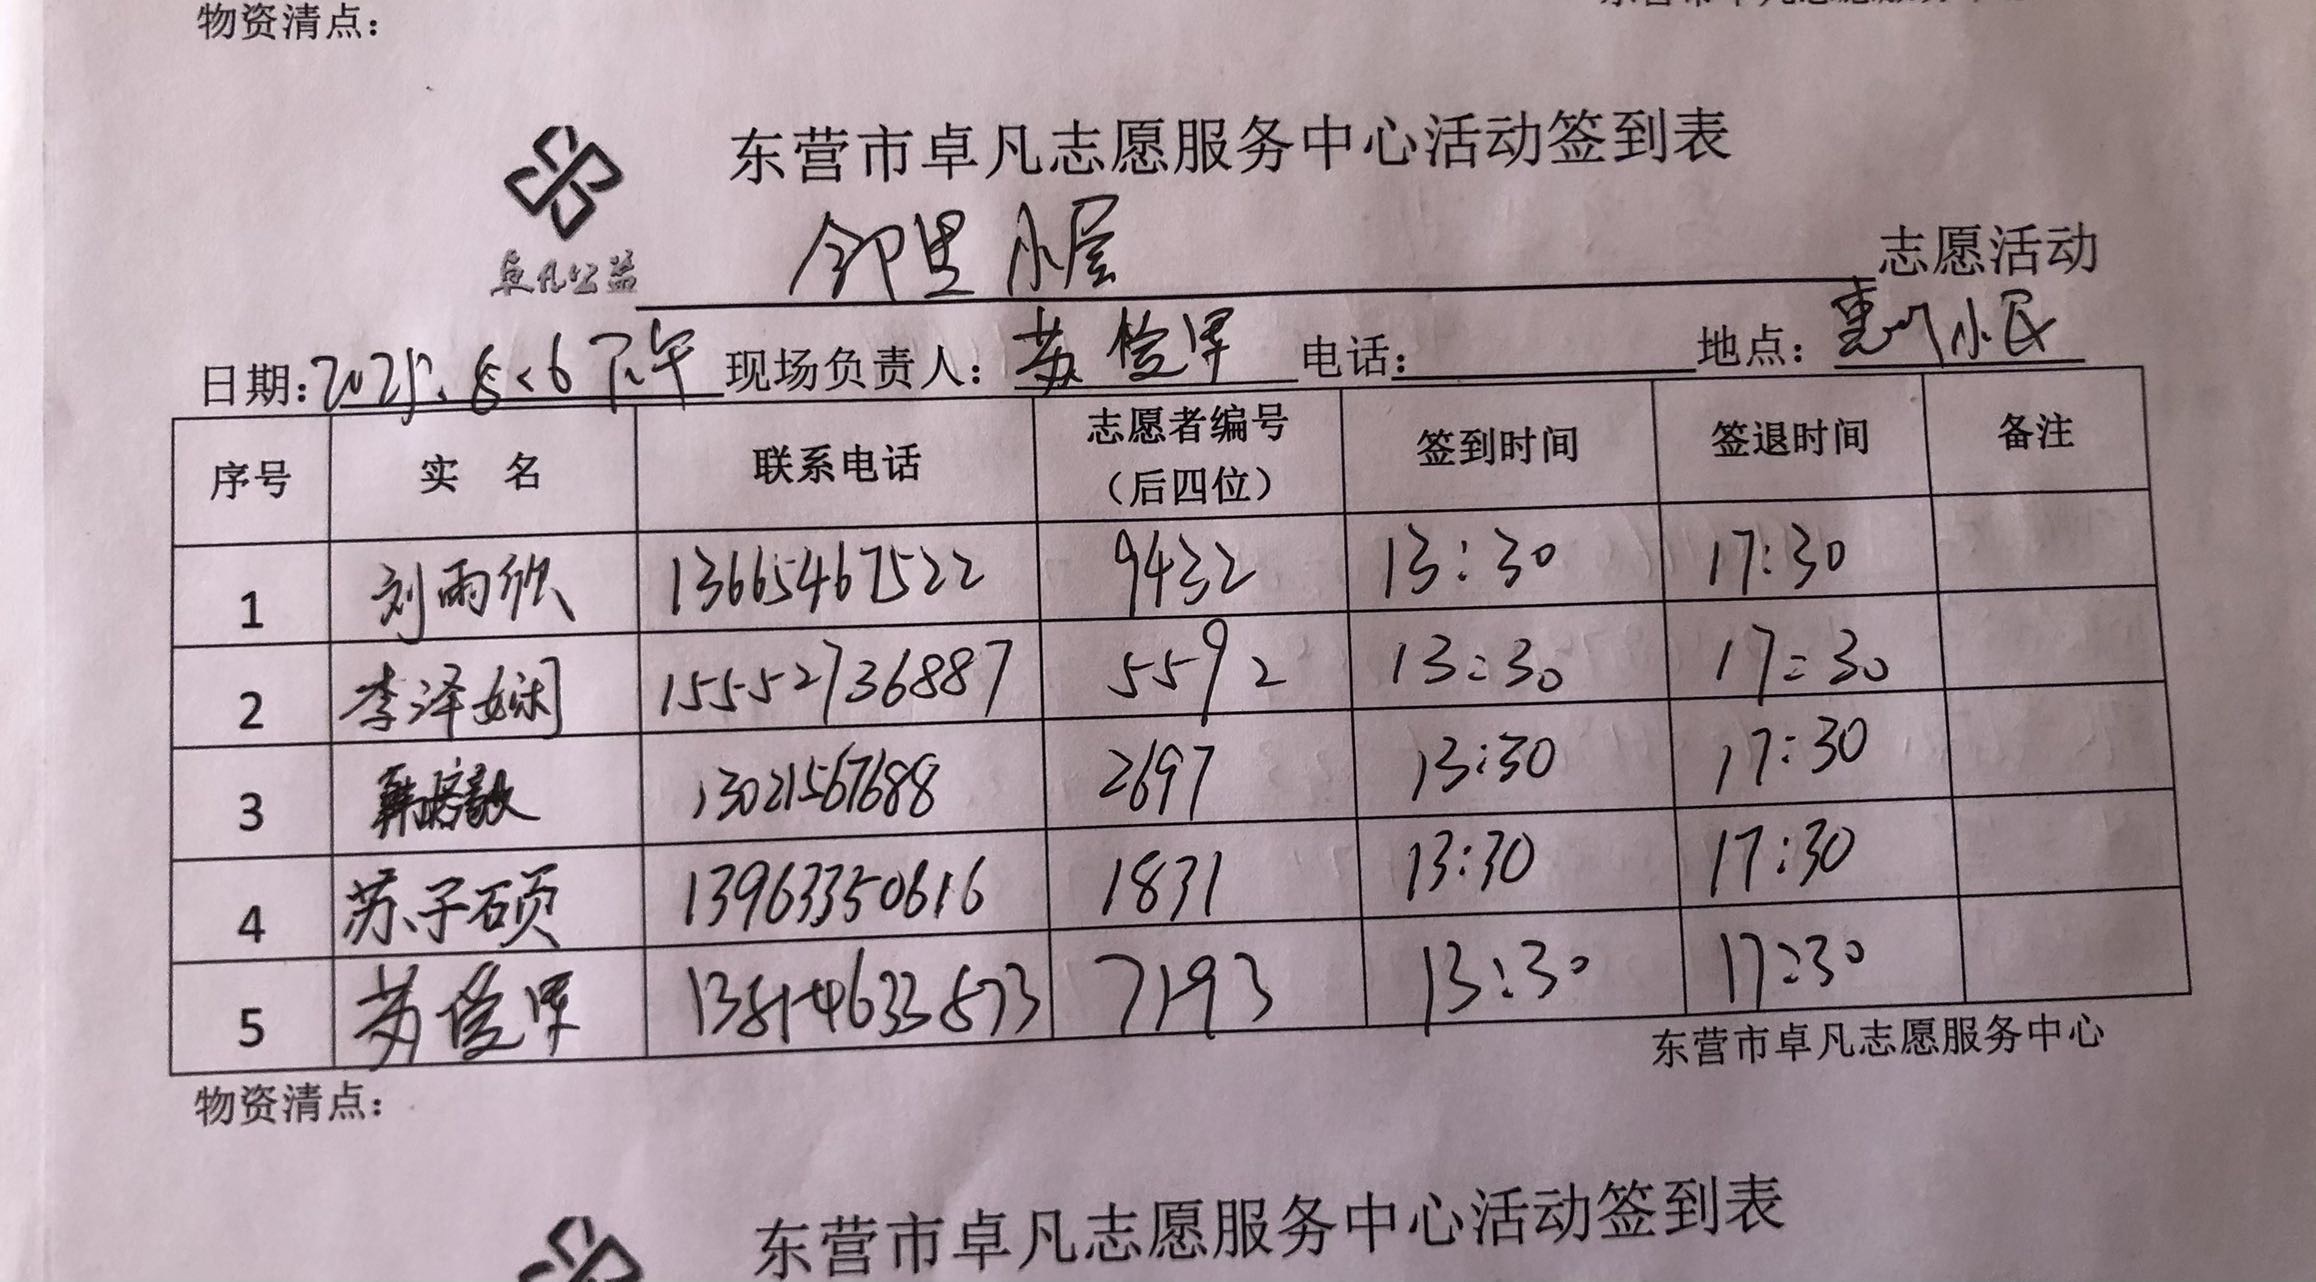 物资清点：
东营市卓凡志愿服务中心活动签到表
卓凡公益
邻里小屋 志愿活动
日期: 下午 现场负责人: 苏 军 电话: 地点: 惠州小区
序号 实 名 联系电话 志愿者编号（后四位） 签到时间 签退时间 备注
1 刘雨欣 13665467522 9432 13:30 17:30
2 李泽娴 15552736887 5592 13:30 17:30
3 13021567688 2697 13:30 17:30
4 苏子硕 13963350616 1831 13:30 17:30
5 苏 军 7193 13:30 17:30
东营市卓凡志愿服务中心
物资清点：
东营市卓凡志愿服务中心活动签到表